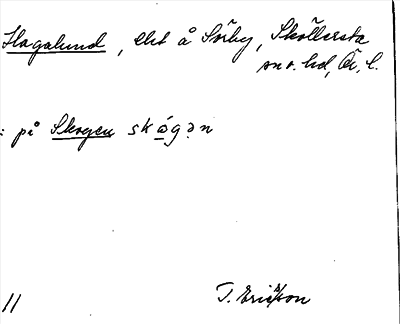 Hagalund, lht å Sörby, Sköllersta
sn o. hd, Ör. l.
: på Skogen skógən
11
T. Ericsson